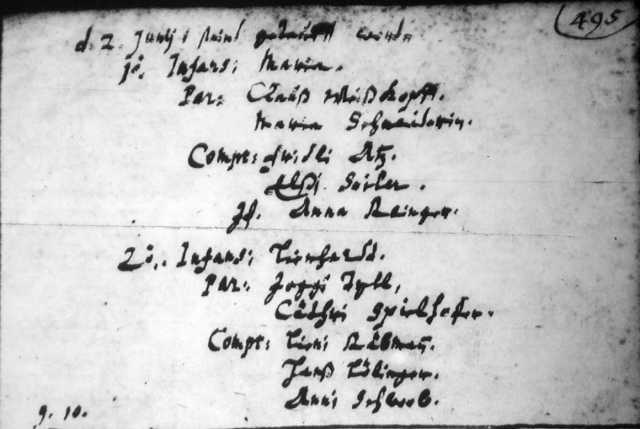 495
d. 2. Junij seind getaufft worden
1o. Infans: Maria.
Par: Clauß Weißkopff.
Maria Schneiderin.
Compr: Fridli Atz.
Elsi Seiler.
Jf. Anna Reinger.
2o. Infans: Lienhardt.
Par: Joggi Tyll,
Cathri Spielhofer.
Compr: Lieni Räbman.
Hanß Lölinger.
Anni Schwob.
9. 10.